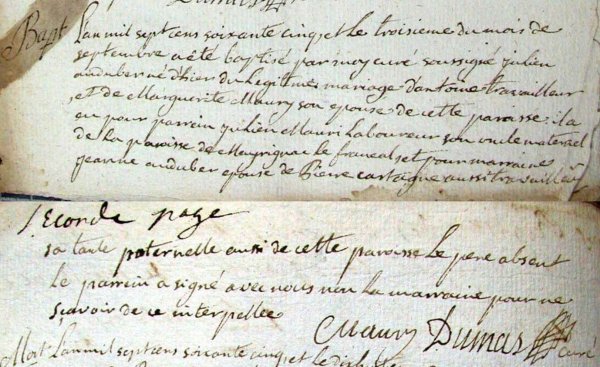 Bapt
L'an mil septcens soixante cinq et le troisieme du mois de
septembre a été baptisé par moy curé soussigné julien
auduber né d'hier du legitime mariage d'antoine travailleur
et de Marguerite Maury son epouse de cette paroisse il a
eu pour parrein julien Mauri Laboureur son oncle materel
de la paroisse de Mayrignac le francal et pour marraine
jeanne auduber epouse de Pierre cartaigne aussi travailleur
seconde page
sa tante paternelle aussi de cette paroisse Le pere absent
le parrein a signé avec nous non la marraine pour ne
sçavoir de ce interpellée
Maury Dumas curé
Mort L'an mil septcens soixante cinq et le